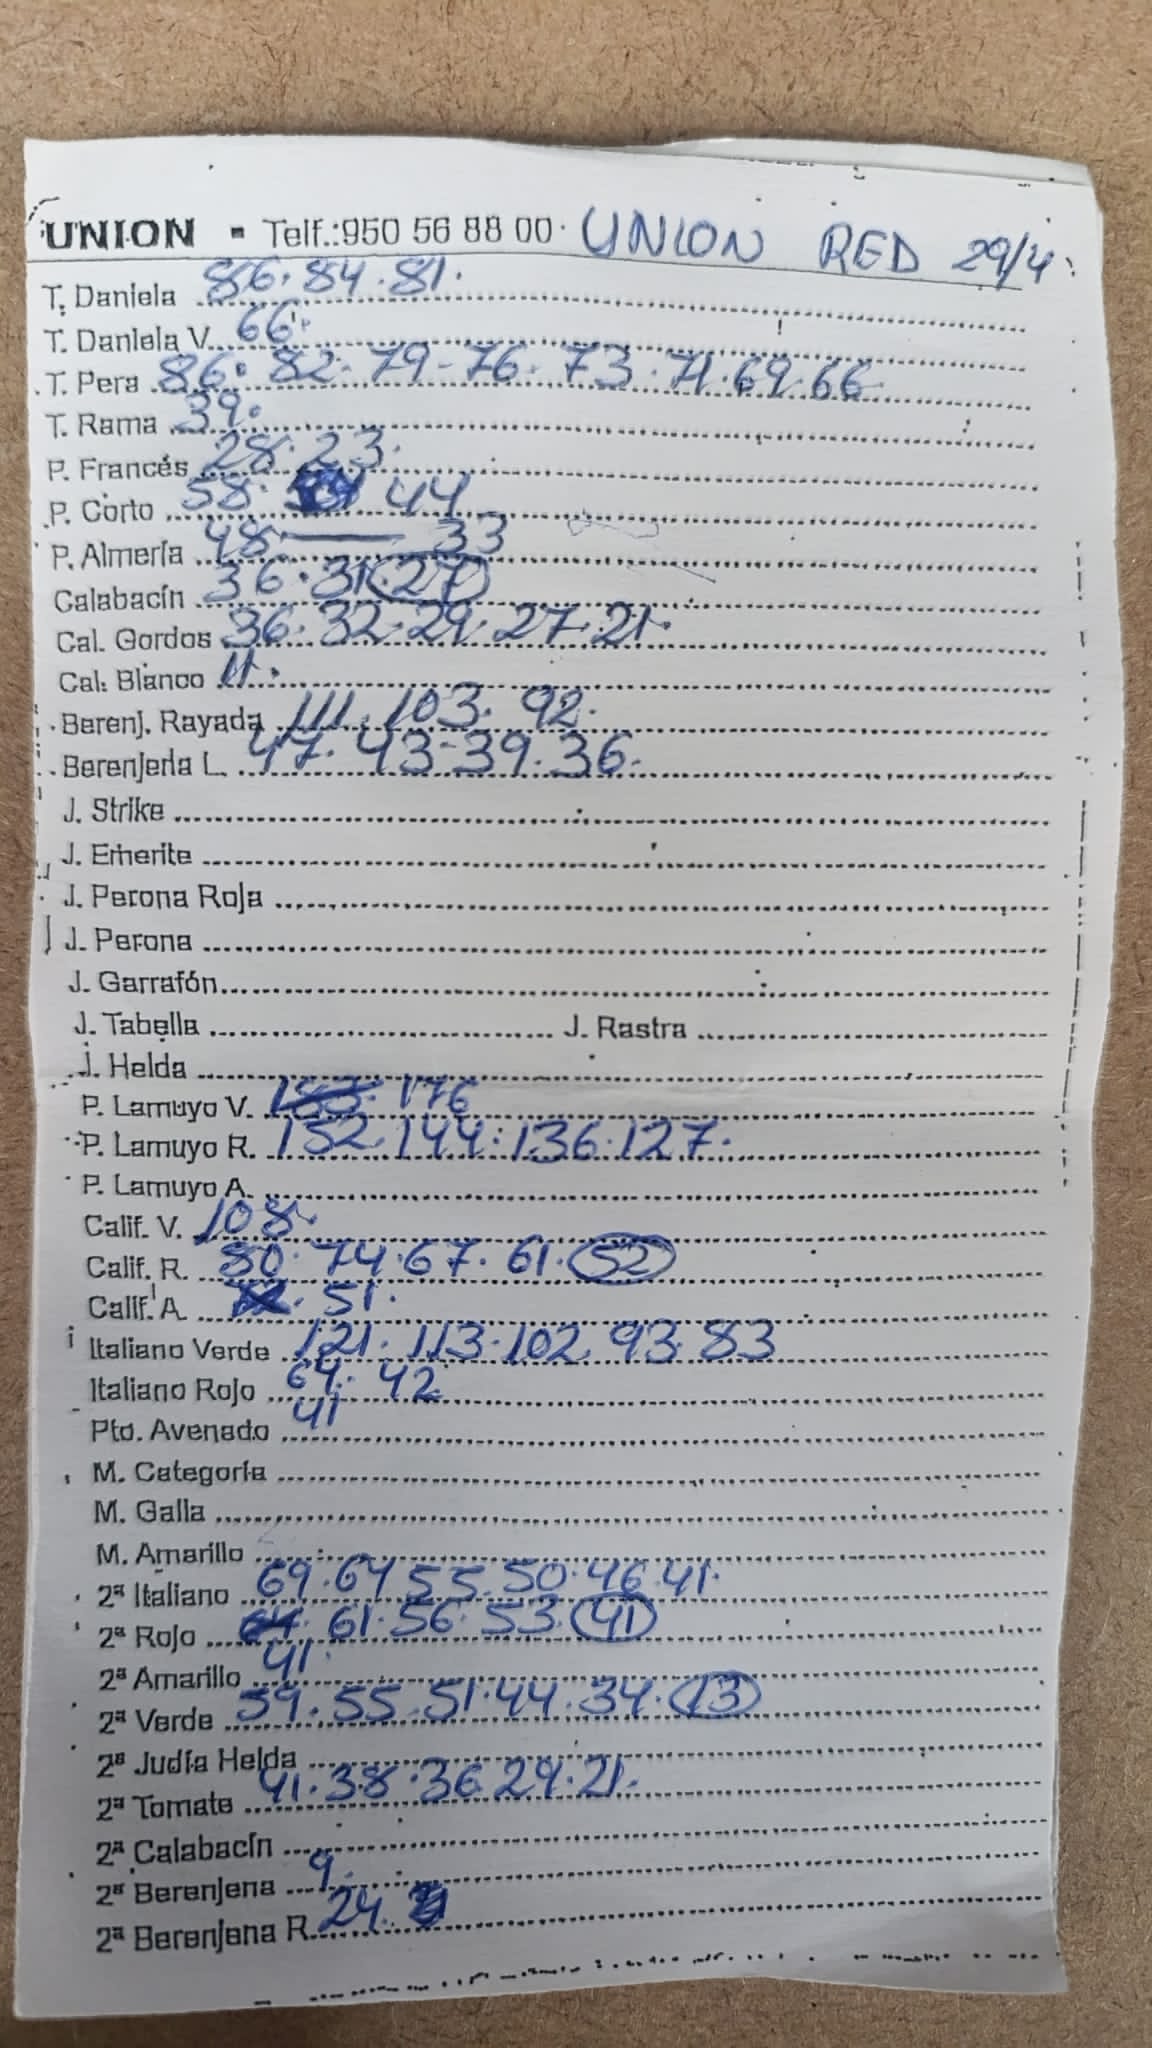 UNION - Telf.:950 56 88 00 UNION RED 29/4
T. Daniela 86. 84. 81.
T. Daniela V. 66.
T. Pera 86. 82. 79 - 76. 73. 71. 69. 66
T. Rama 39.
P. Francés 28. 23.
P. Corto 58. 44
P. Almería 48 — 33
Calabacín 36. 31 27
Cal. Gordos 36. 32. 29. 27. 21.
Cal. Blanco 11.
Berenj. Rayada 111. 103. 92.
Berenjena L. 47. 43 - 39. 36.
J. Strike
J. Emerite
J. Perona Roja
J. Perona
J. Garrafón
J. Tabella J. Rastra
J. Helda
P. Lamuyo V. 183. 176
P. Lamuyo R. 152. 144. 136. 127.
P. Lamuyo A.
Calif. V. 108.
Calif. R. 80. 74. 67. 61. 52
Calif. A. 51.
Italiano Verde 121. 113. 102. 93. 83
Italiano Rojo 64. 42
Pto. Avenado 41
M. Categoría
M. Galla
M. Amarillo
2ª Italiano 69. 64 55. 50. 46. 41.
2ª Rojo 61. 56. 53. 41
2ª Amarillo 41.
2ª Verde 59. 55. 51. 44. 34. 13
2ª Judía Helda
2ª Tomate 41. 38. 36 29. 21.
2ª Calabacín
2ª Berenjena 9.
2ª Berenjena R. 24.